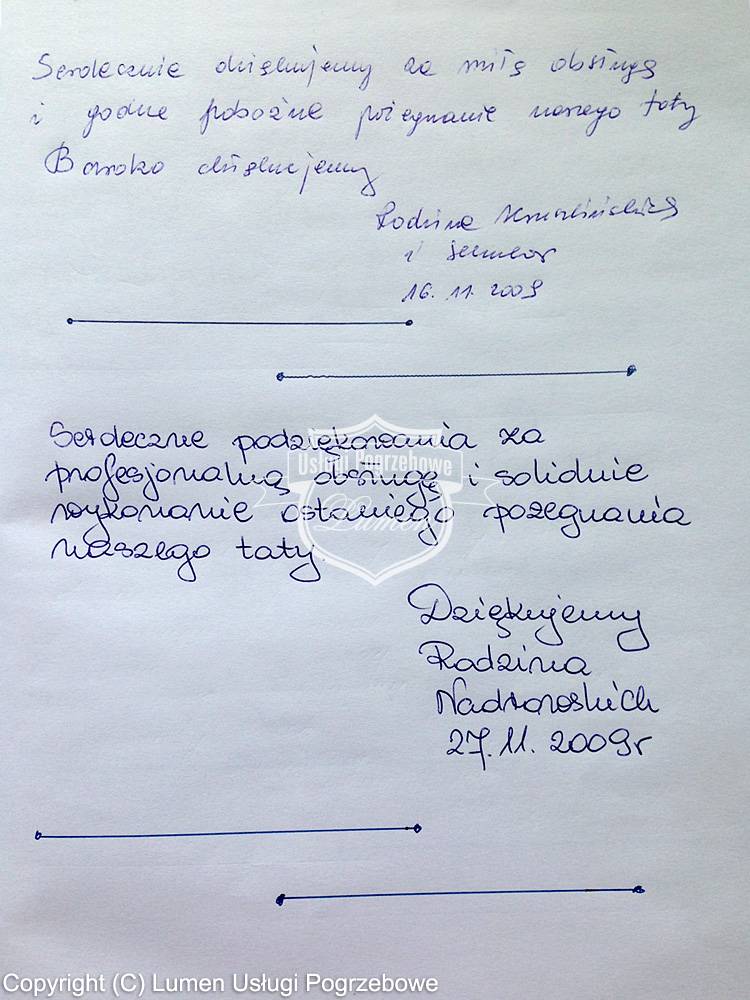 Serdecznie dziękujemy za miłą obsługę
i godne pobożne pożegnanie naszego taty
Bardzo dziękujemy
Rodzina
i
16. 11. 2009
Serdeczne podziękowania za
profesjonalną obsługę i solidnie
wykonanie ostatniego pożegnania
naszego taty.
Usługi Pogrzebowe
Lumen
Dziękujemy
Rodzina
27. 11. 2009r
Copyright (C) Lumen Usługi Pogrzebowe